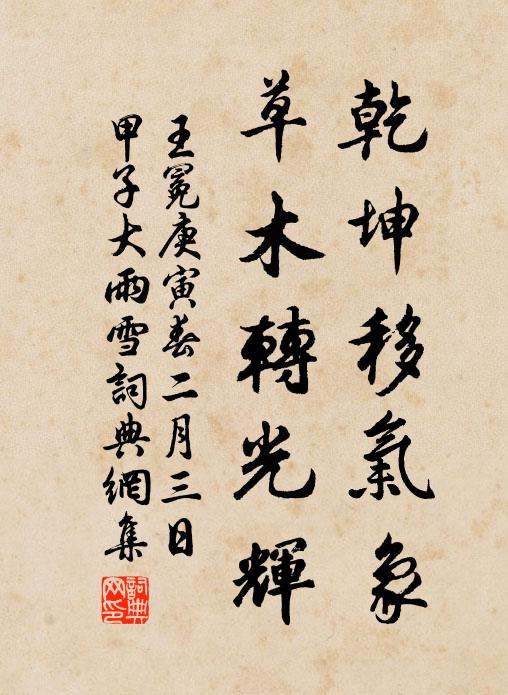 乾坤移氣象
草木轉光輝
王冕庚寅春二月三日
甲子大雨雪詞典網集
詞典網印